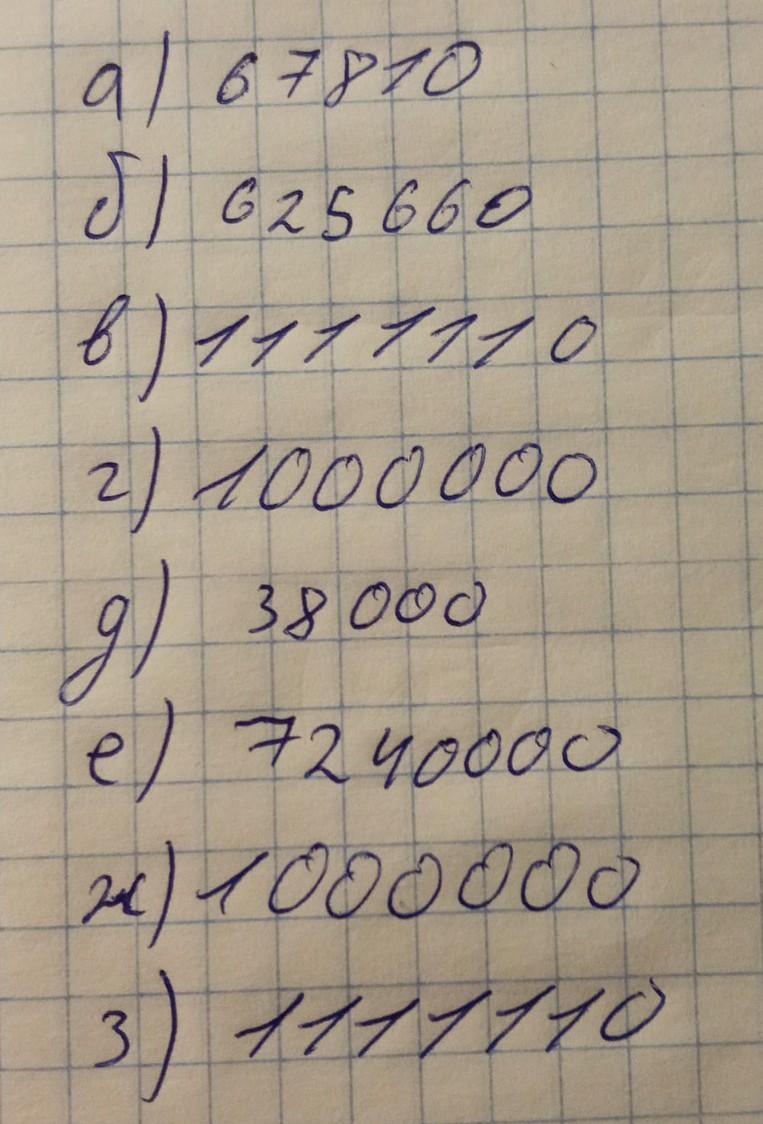 а) 67810
б) 625660
в) 1111110
г) 1000000
д) 38000
е) 7240000
ж) 1000000
з) 1111110